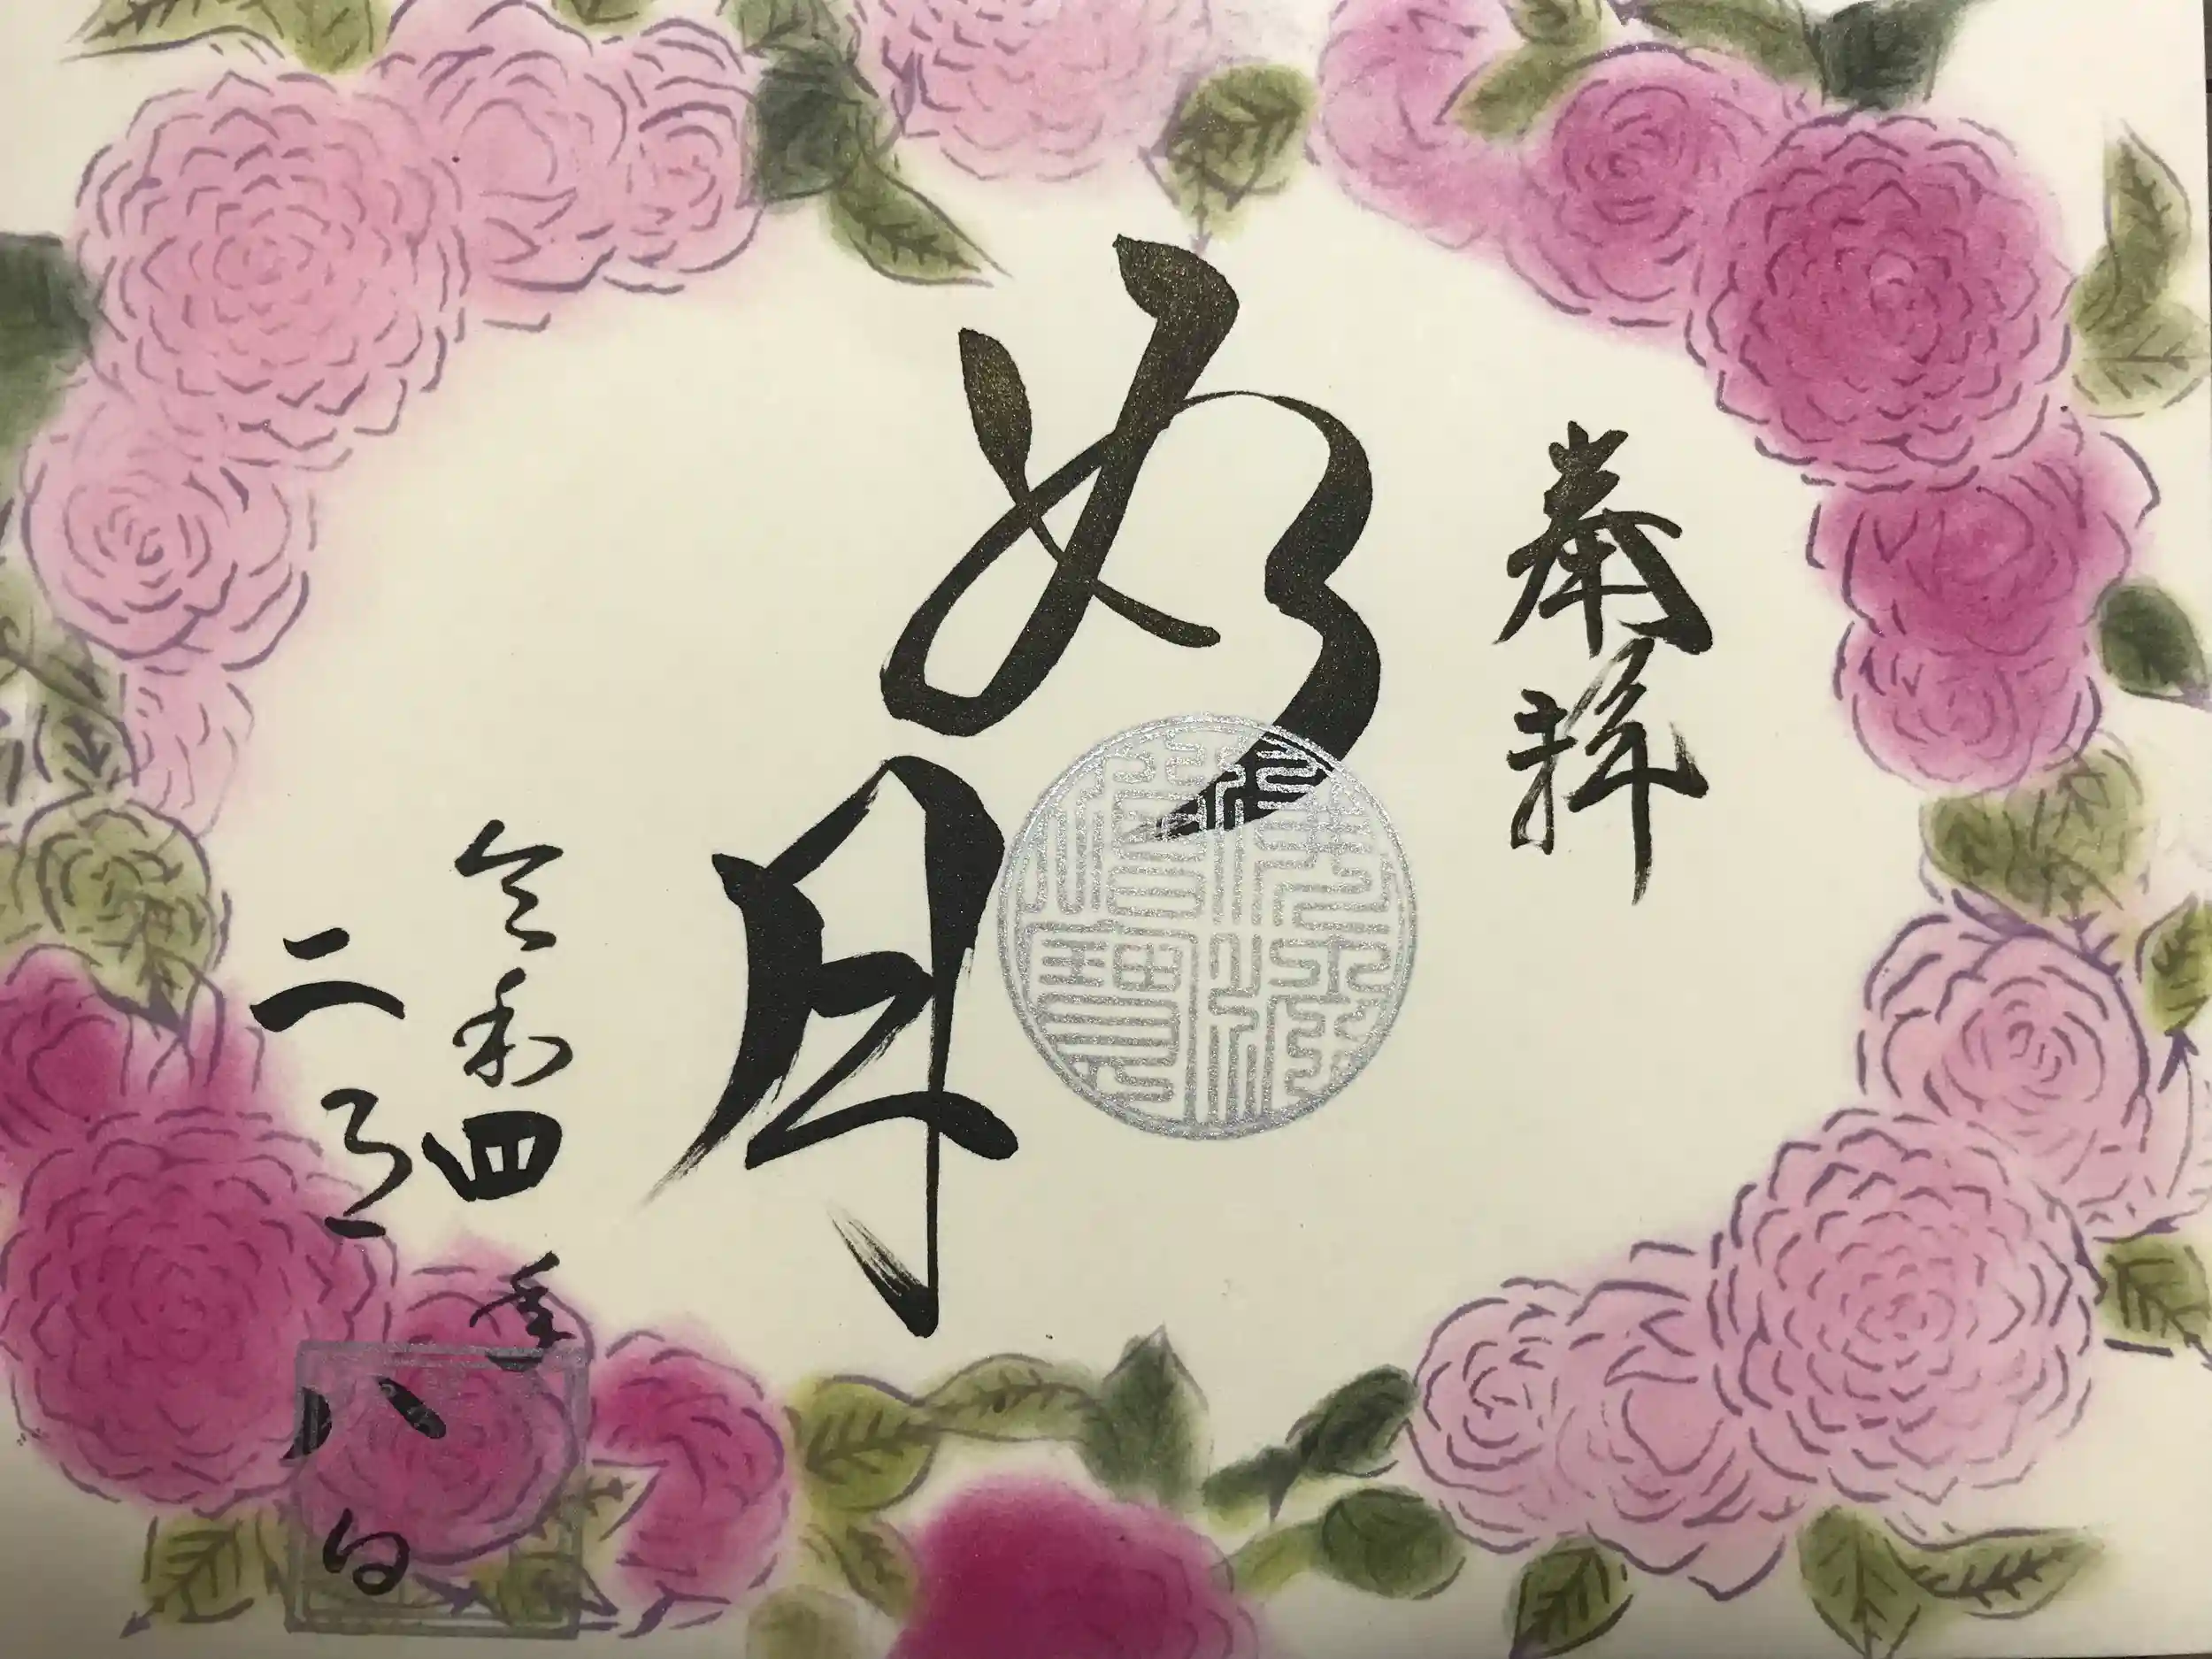 奉拝
如月
令和四年
二月八日